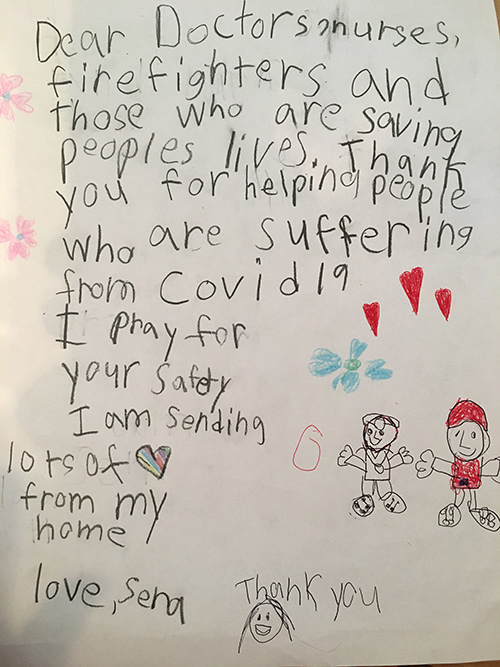 Dear Doctors, nurses,
firefighters and
those who are saving
peoples lives. Thank
you for helping people
who are suffering
from Covid19
I pray for
your Safety
I am Sending
lots of
from my
home
love, Sena
Thank you